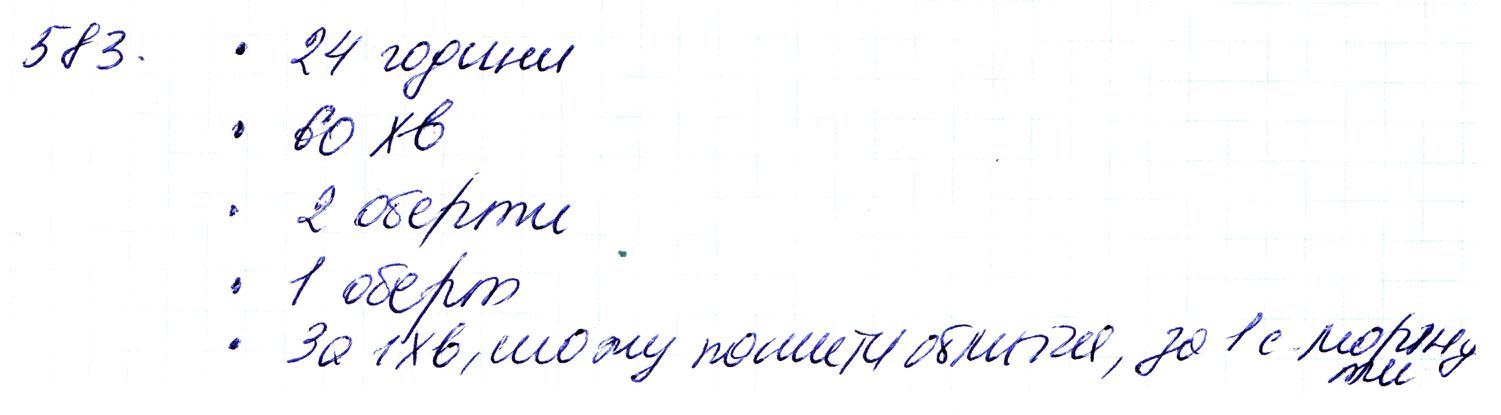 583. • 24 години
• 60 хв
• 2 оберти
• 1 оберт
• За 1 хв, можу помити обличчя, за 1 с моргну
ти